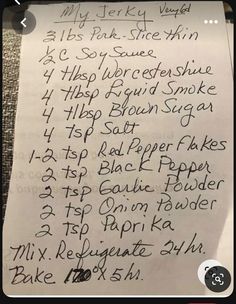 My Jerky Very Gd
3 lbs Pork-Slice thin
1/2 C Soy Sauce
4 tlbsp Worcestershire
4 tlbsp Liquid Smoke
4 tlbsp Brown Sugar
4 tsp Salt
1-2 tsp Red Pepper Flakes
2 tsp Black Pepper
2 tsp Garlic Powder
2 tsp Onion Powder
2 tsp Paprika
Mix. Refrigerate 24 hr.
Bake 170° x 5 hr.